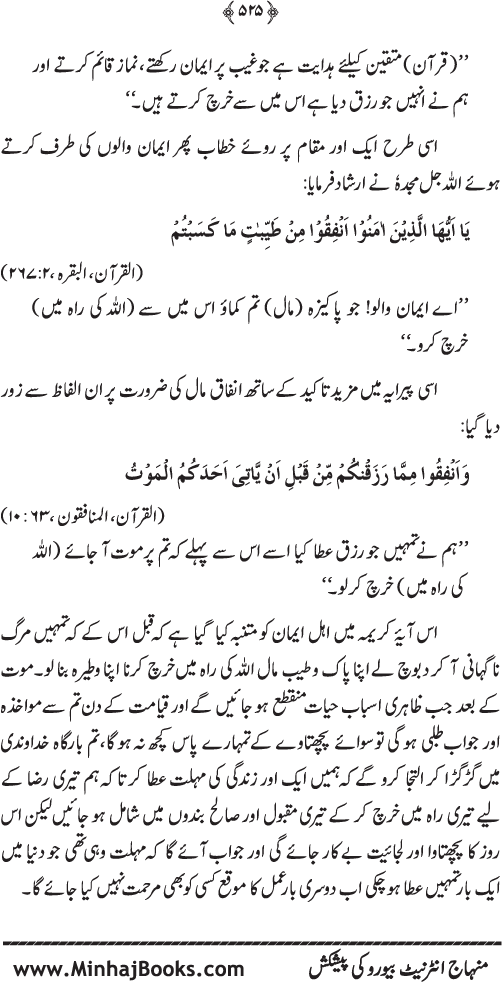 ﴿۵۲۵﴾
’’(قرآن) متقین کیلئے ہدایت ہے جو غیب پر ایمان رکھتے، نماز قائم کرتے اور
ہم نے انہیں جو رزق دیا ہے اس میں سے خرچ کرتے ہیں۔‘‘
اسی طرح ایک اور مقام پر روئے خطاب پھر ایمان والوں کی طرف کرتے
ہوئے اللہ جل مجدہٗ نے ارشاد فرمایا:
يَا اَيُّهَا الَّذِيْنَ اٰمَنُوْا اَنْفِقُوْا مِنْ طَيِّبٰتِ مَا كَسَبْتُمْ
(القرآن، البقرہ ،۲:۲۶۷)
’’اے ایمان والو! جو پاکیزہ (مال) تم کماؤ اس میں سے (اللہ کی راہ میں)
خرچ کرو۔‘‘
اسی پیرایہ میں مزید تاکید کے ساتھ انفاق مال کی ضرورت پر ان الفاظ سے زور
دیا گیا:
وَاَنْفِقُوا مِمَّا رَزَقْنٰكُمْ مِّنْ قَبْلِ اَنْ يَّاْتِىَ اَحَدَكُمُ الْمَوْتُ
(القرآن، المنافقون ،۶۳: ۱۰)
’’ہم نے تمہیں جو رزق عطا کیا اسے اس سے پہلے کہ تم پر موت آ جائے (اللہ
کی راہ میں) خرچ کر لو۔‘‘
اس آیۂ کریمہ میں اہل ایمان کو متنبہ کیا گیا ہے کہ قبل اس کے کہ تمہیں مرگ
ناگہانی آ کر دبوچ لے اپنا پاک و طیب مال اللہ کی راہ میں خرچ کرنا اپنا وطیرہ بنا لو۔ موت
کے بعد جب ظاہری اسباب حیات منقطع ہو جائیں گے اور قیامت کے دن تم سے مواخذہ
اور جواب طلبی ہو گی تو سوائے پچھتاوے کے تمہارے پاس کچھ نہ ہو گا، تم بارگاہ خداوندی
میں گڑگڑا کر التجا کرو گے کہ ہمیں ایک اور زندگی کی مہلت عطا کر تا کہ ہم تیری رضا کے
لیے تیری راہ میں خرچ کر کے تیری مقبول اور صالح بندوں میں شامل ہو جائیں لیکن اس
روز کا پچھتاوا اور لجائیت بے کار جائے گی اور جواب آئے گا کہ مہلت وہی تھی جو دنیا میں
ایک بار تمہیں عطا ہو چکی اب دوسری بار عمل کا موقع کسی کو بھی مرحمت نہیں کیا جائے گا۔
منہاج انٹرنیٹ بیورو کی پیشکش
www.MinhajBooks.com